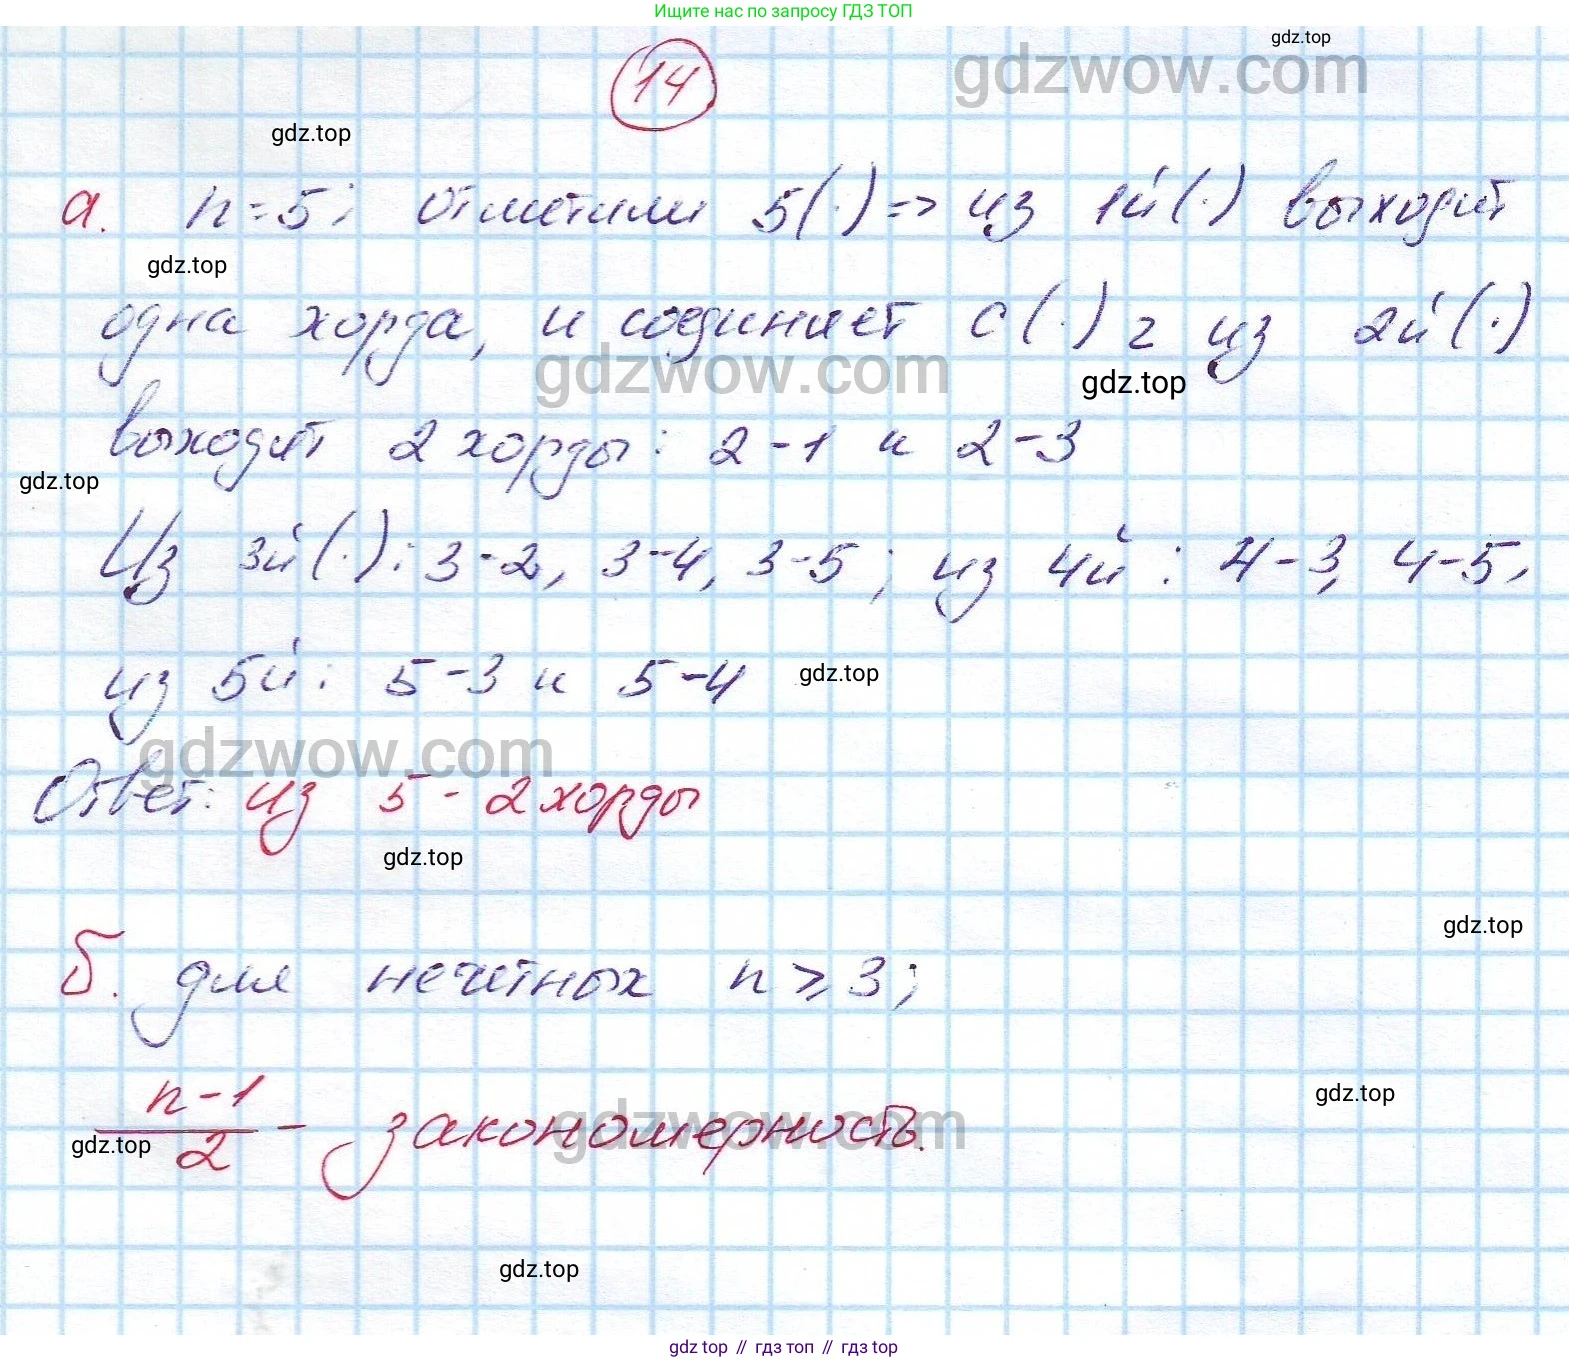 Ищите нас по запросу ГДЗ ТОП
gdz.top
gdzwow.com
14
gdz.top
а. n=5; отметили 5(·) => из 1й(·) выходит
gdz.top
одна хорда, и соединяет с (·) 2 из 2й(·)
gdzwow.com
gdz.top
выходят 2 хорды: 2-1 и 2-3
gdz.top
Из 3й(·): 3-2, 3-4, 3-5; из 4й: 4-3, 4-5,
из 5й: 5-3 и 5-4
gdz.top
gdzwow.com
Ответ: из 5 - 2 хорды
gdz.top
gdz.top
б. для нечетных n ⩾ 3;
gdz.top
n-1
gdzwow.com
2 - закономерность.
gdz.top
gdz.top
gdz top // гдз топ // гдз top